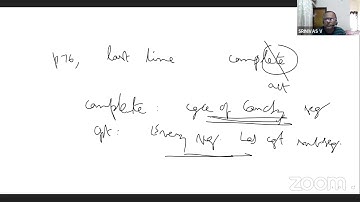 SRINIVAS V
p 76, last line complete
act
complete : cgce of Cauchy seq
cpt : Every seq has cgt subseq.
zoom